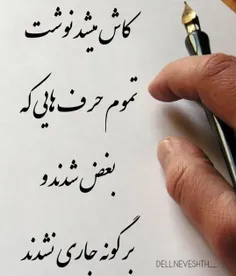 کاش میشد نوشت
تموم حرف هایی که
بغض شدند و
بر گونه جاری نشدند
DELL.NEVESHTH__